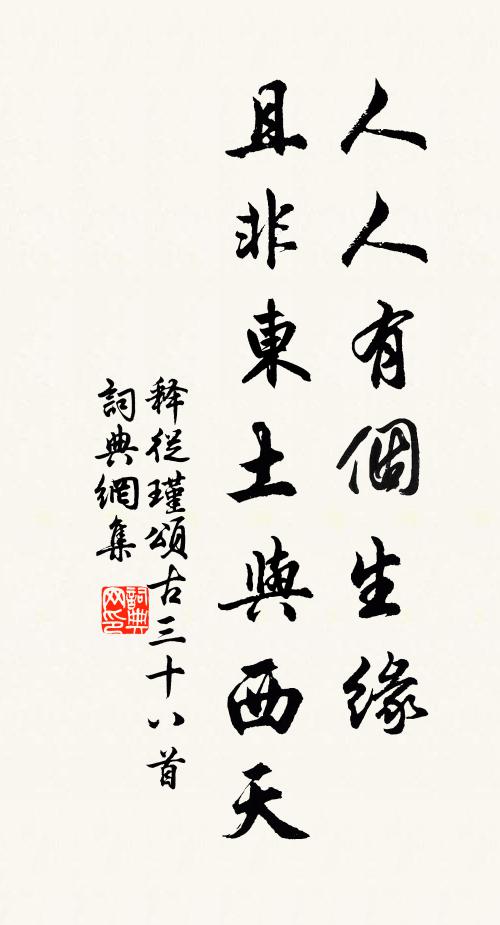 人人有個生緣
且非東土與西天
释從瑾頌古三十八首
詞典網集
詞典网印